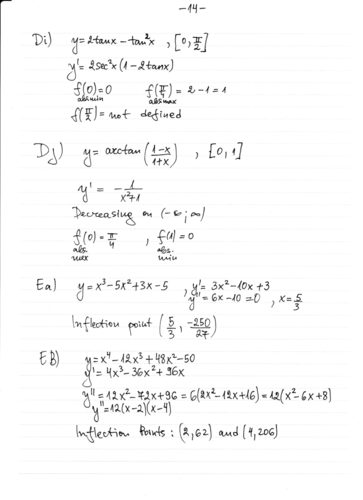 -14-
Di) y = 2tanx - tan²x , [0, π/2]
y' = 2sec²x (1 - 2tanx)
f(0) = 0 f(π/4) = 2 - 1 = 1
abs min abs max
f(π/2) = not defined
Dj) y = arctan((1-x)/(1+x)) , [0, 1]
y' = - 1/(x²+1)
Decreasing on (-∞; ∞)
f(0) = π/4 , f(1) = 0
abs. abs.
max min
Ea) y = x³ - 5x² + 3x - 5 , y' = 3x² - 10x + 3
y'' = 6x - 10 = 0 , x = 5/3
Inflection point (5/3, -250/27)
EB) y = x⁴ - 12x³ + 48x² - 50
y' = 4x³ - 36x² + 96x
y'' = 12x² - 72x + 96 = 6(2x² - 12x + 16) = 12(x² - 6x + 8)
y'' = 12(x-2)(x-4)
Inflection Points : (2, 62) and (4, 206)